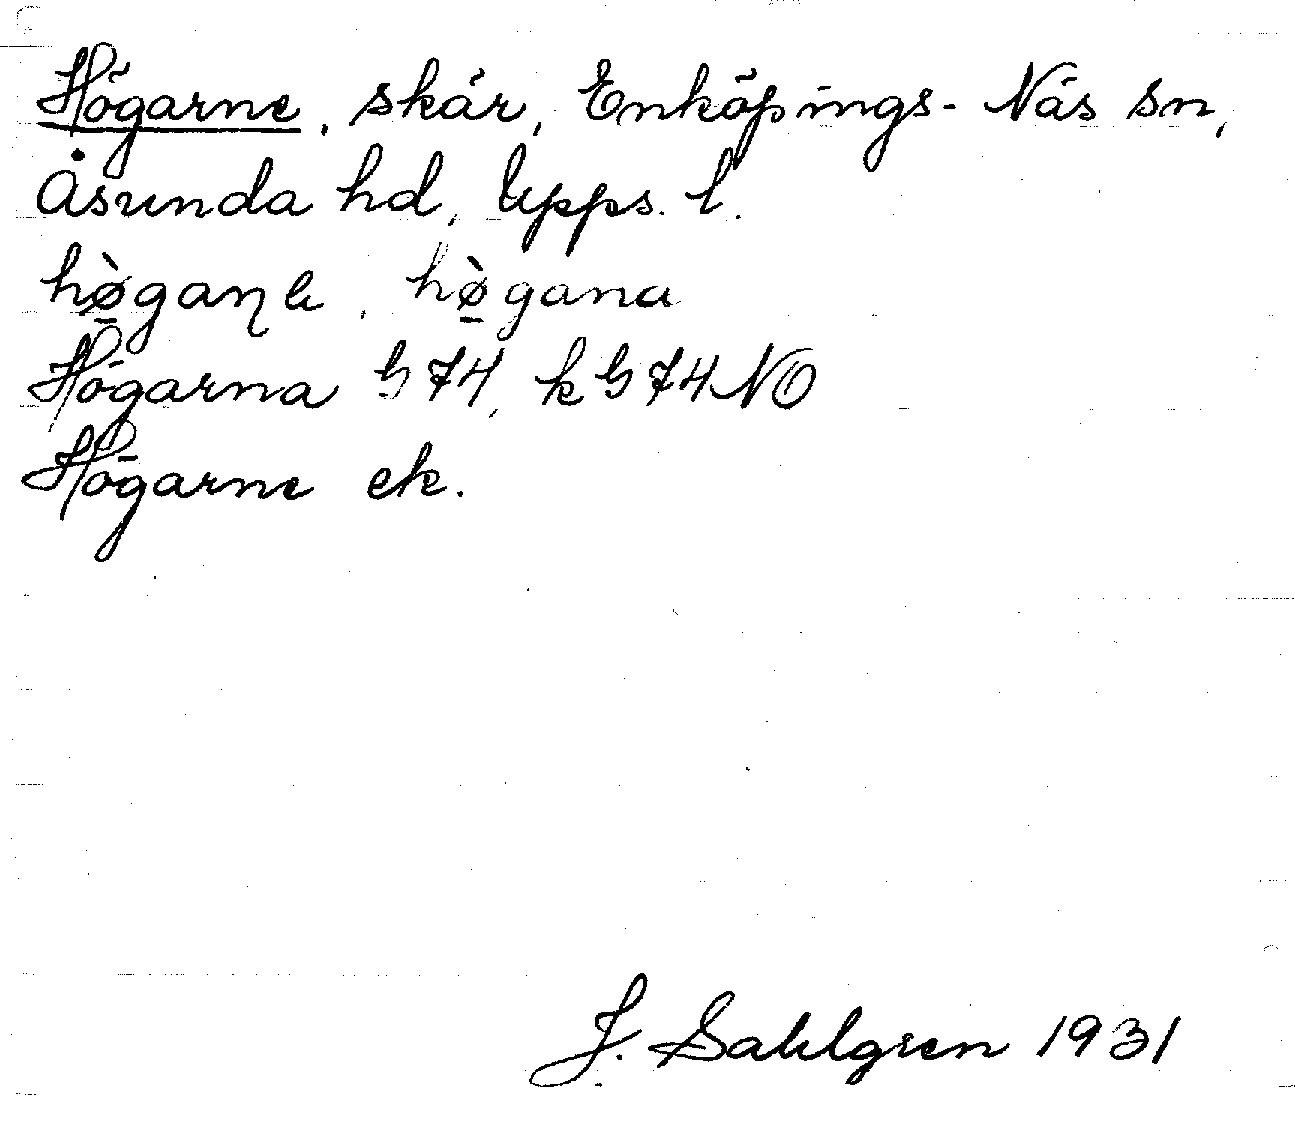 Högarne, skär, Enköpings-Näs sn,
Åsunda hd, Upps. l.
hø̠̀gaɳɐ, hø̠̀gana
Högarna G 74, k G 74 NO
Högarne ek.
J. Sahlgren 1931